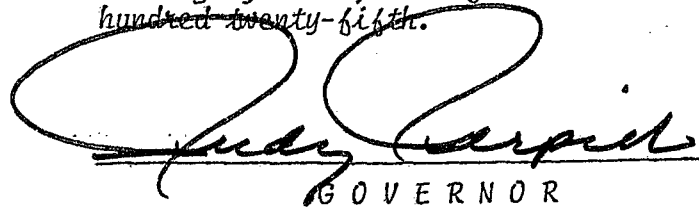 hundred twenty-fifth.
Rudy Perpich
GOVERNOR